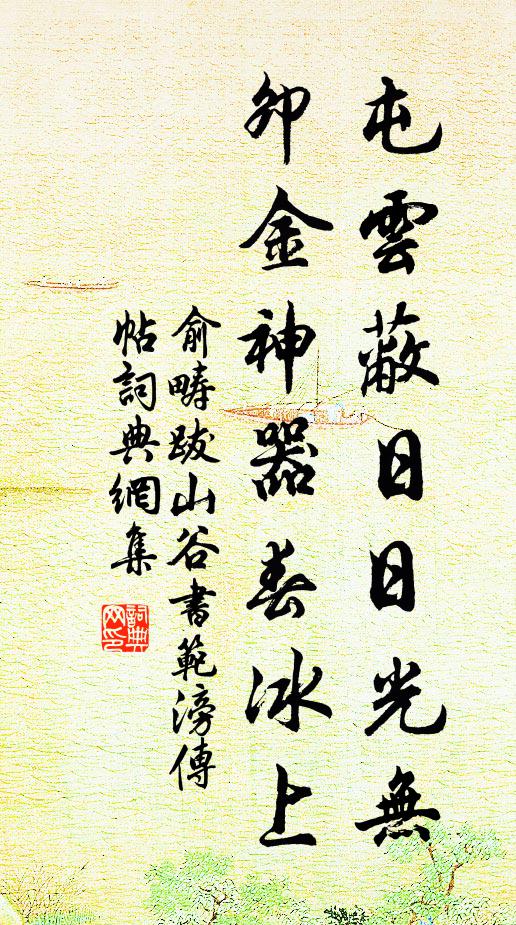 屯雲蔽日日光無
卯金神器春冰上
俞疇跋山谷書範滂傳
帖詞典網集
詞典网印